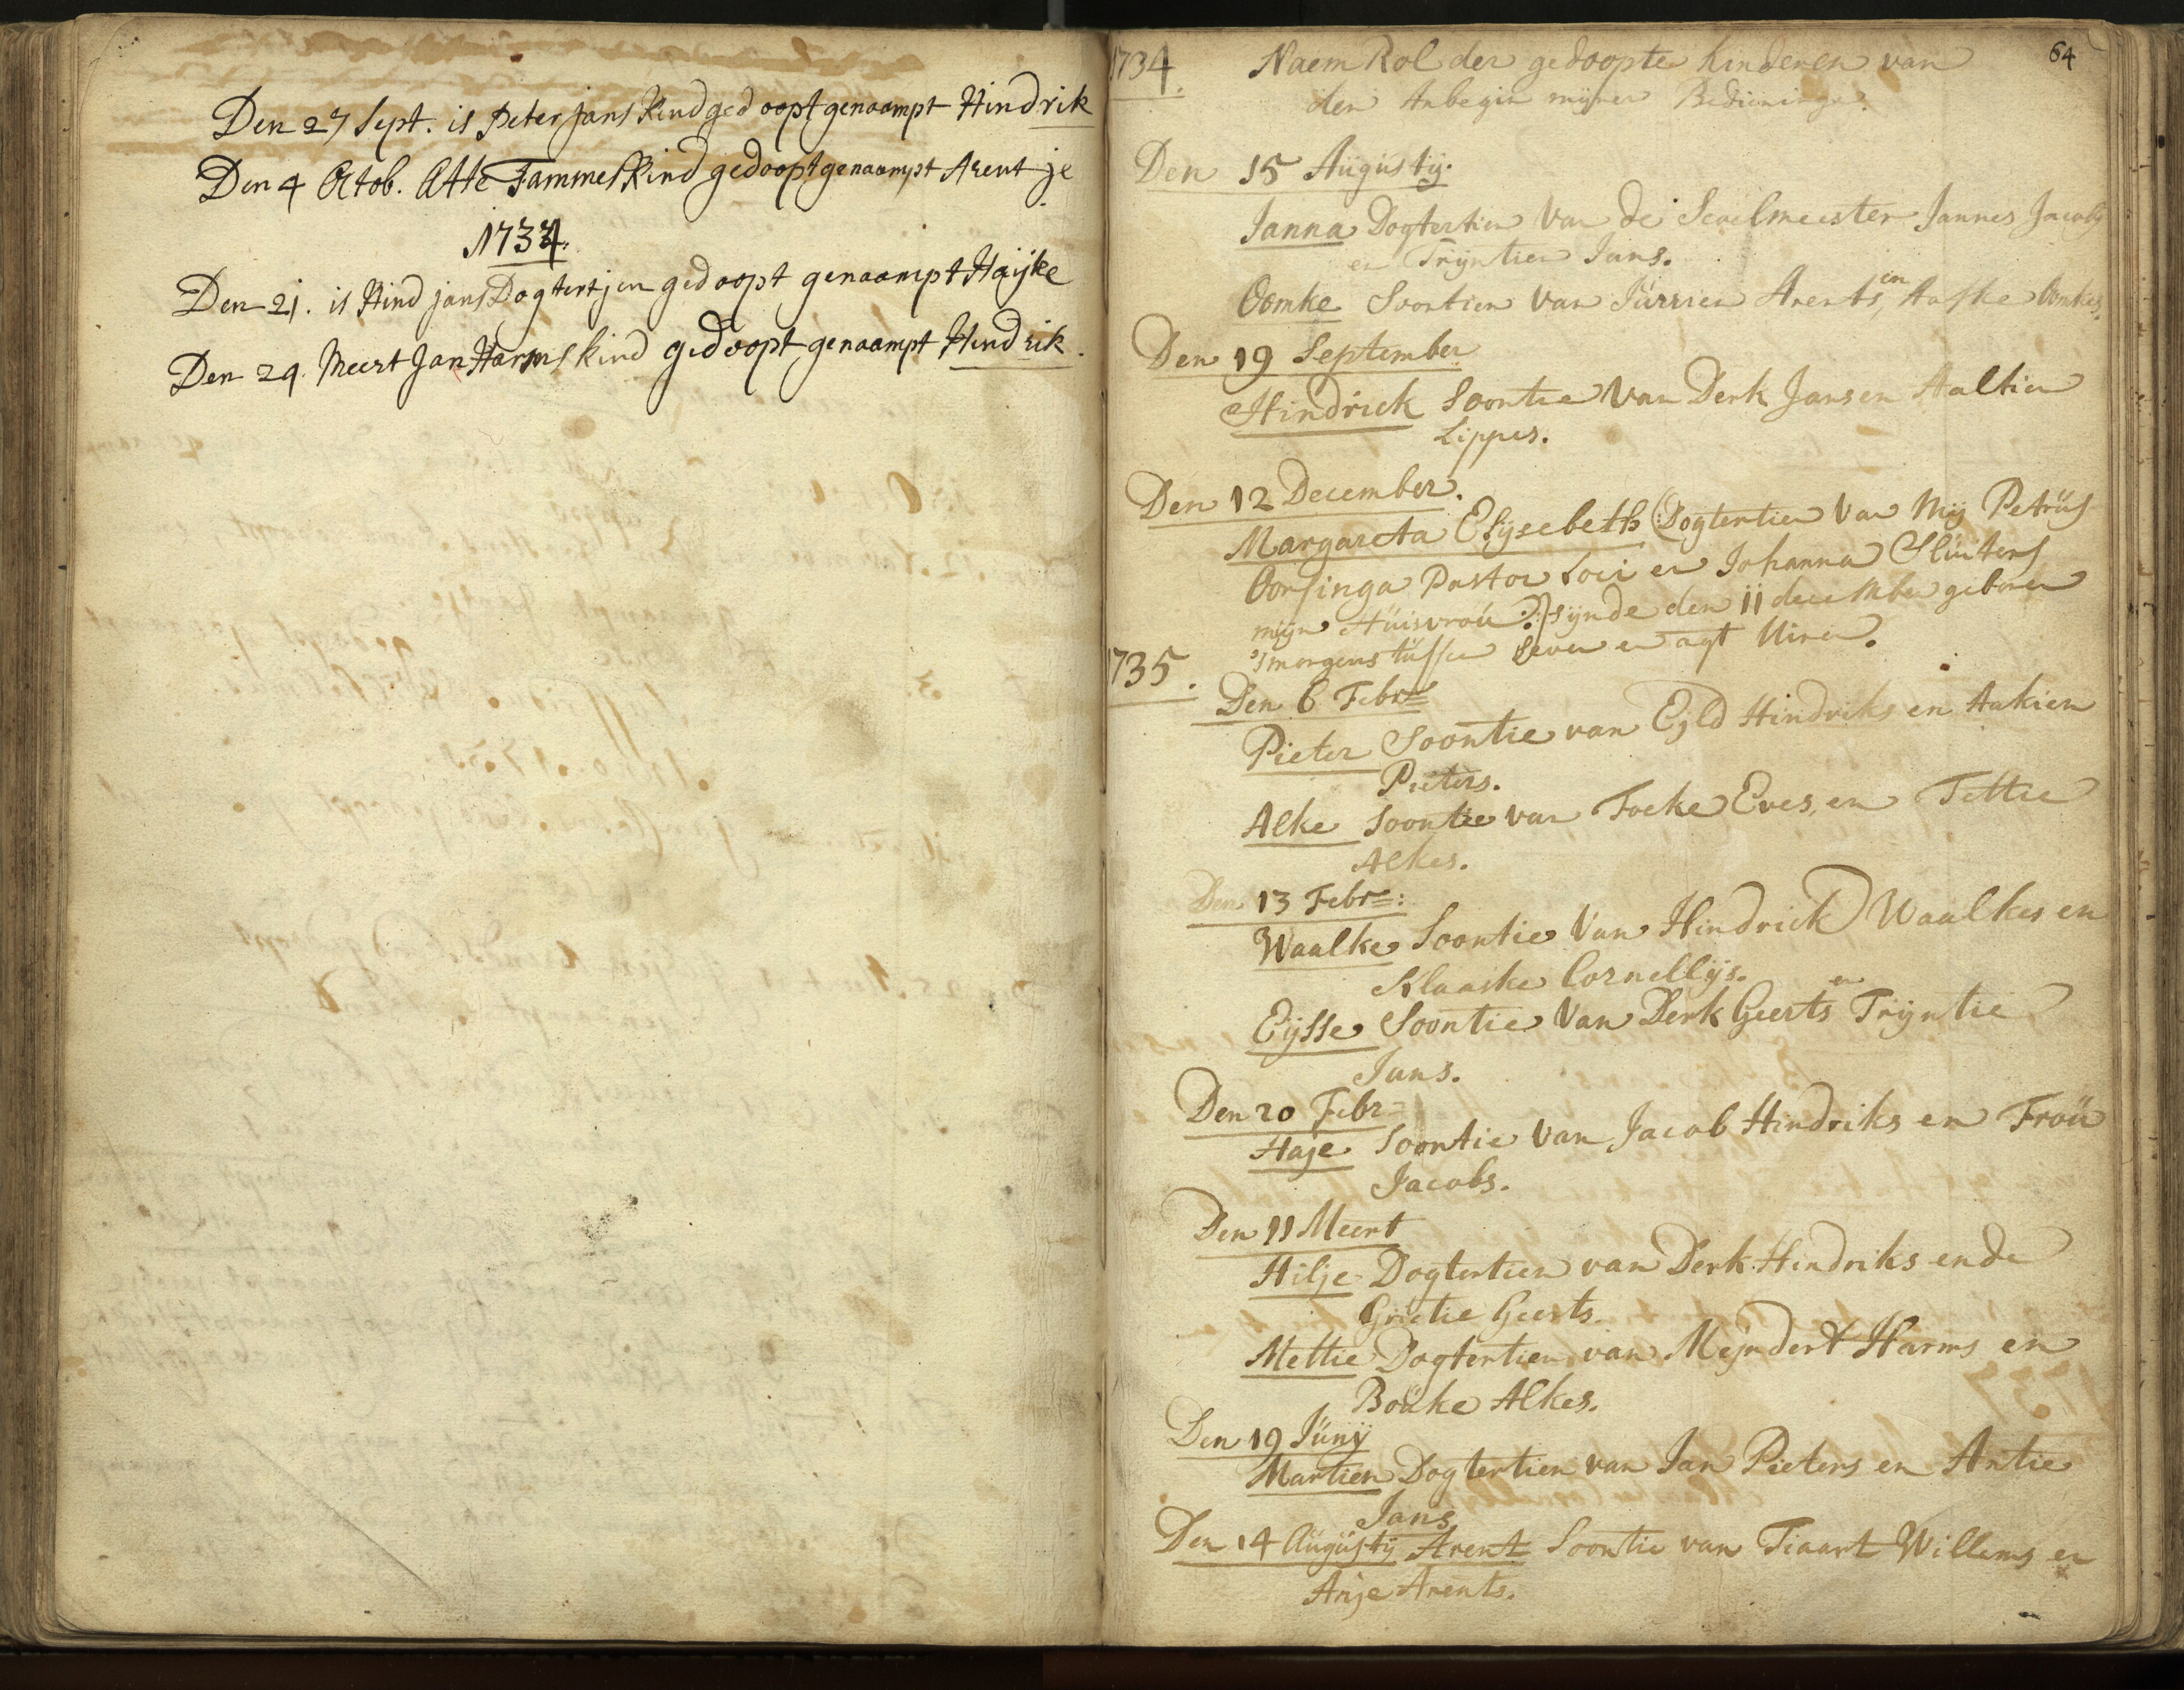 Den 27 Sept. is Peter Jans Kind gedoopt genaampt Hindrik
Den 4 Octob. Atte Tammes Kind gedoopt genaampt Arentje
1734.
Den 21. is Hind Jans Dogtertjen gedoopt genaampt Haijke
Den 29. Meert Jan Harms kind gedoopt genaampt Hindrik.
64
1734. Naem Rol der gedoopte kinderen van
den Anbegin mijner Bedieninge.
Den 15 Augustij.
Janna Dogtertien van de Scoelmeester Jannes Jacobs
en Trijntien Jans.
Oomke Soontien van Jurrien Arents, en Aafke Oomkes.
Den 19 September
Hindrick Soontie van Derk Jans en Aaltien
Lippes.
Den 12 December.
Margareta Elijsebeth (Dogtertien van Mij Petrus
Oorsinga Pastor Loci en Johanna Sluiters
mijn Huisvrou:) sijnde den 11 december geboren
's morgens tussen seven en agt Uiren.
1735.
Den 6 Febr
Pieter Soontie van Ejld Hindriks en Aukien
Pieters.
Alke Soontie van Focke Eves, en Tettie
Alkes.
Den 13 Febr:
Waalke Soontie van Hindrick Waalkes en
Klaaske Cornellijs.
Eijsse Soontie van Derk Geerts en Trijntie
Jans.
Den 20 Febr
Haje Soontie van Jacob Hindriks en Frou
Jacobs.
Den 11 Meert
Hilje Dogtertien van Derk Hindriks ende
Grietie Geerts.
Mettie Dogtertien van Mejndert Harms en
Bouke Alkes.
Den 19 Junij
Martien Dogtertien van Jan Pieters en Antie
Jans
Den 14 Augustij Arent Soontie van Tiaart Willems en
Anje Arents.